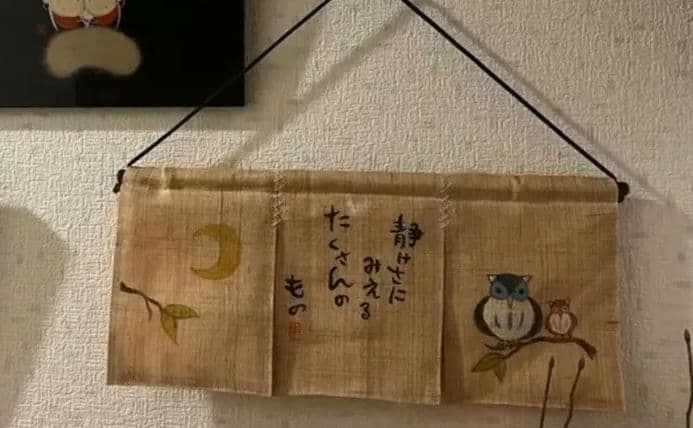 静けさに
みえる
たくさんの
もの